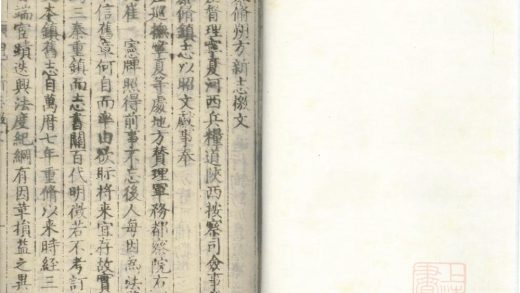 脩朔方新志檄文
督理寧夏河西兵糧道陝西按察司僉事
脩鎮志以昭文盛事奉
巡撫寧夏等處地方贊理軍務都察院右
崔 憲牌照得前事不忘後人每因無法
信舊章何自而率由欲眎將來宜存故實
三秦重鎮而志書關百代明徵若不考訂
查本鎮舊志自萬曆七年重脩以來時經三
端宦蹟迭興法度紀綱有因革損益之異